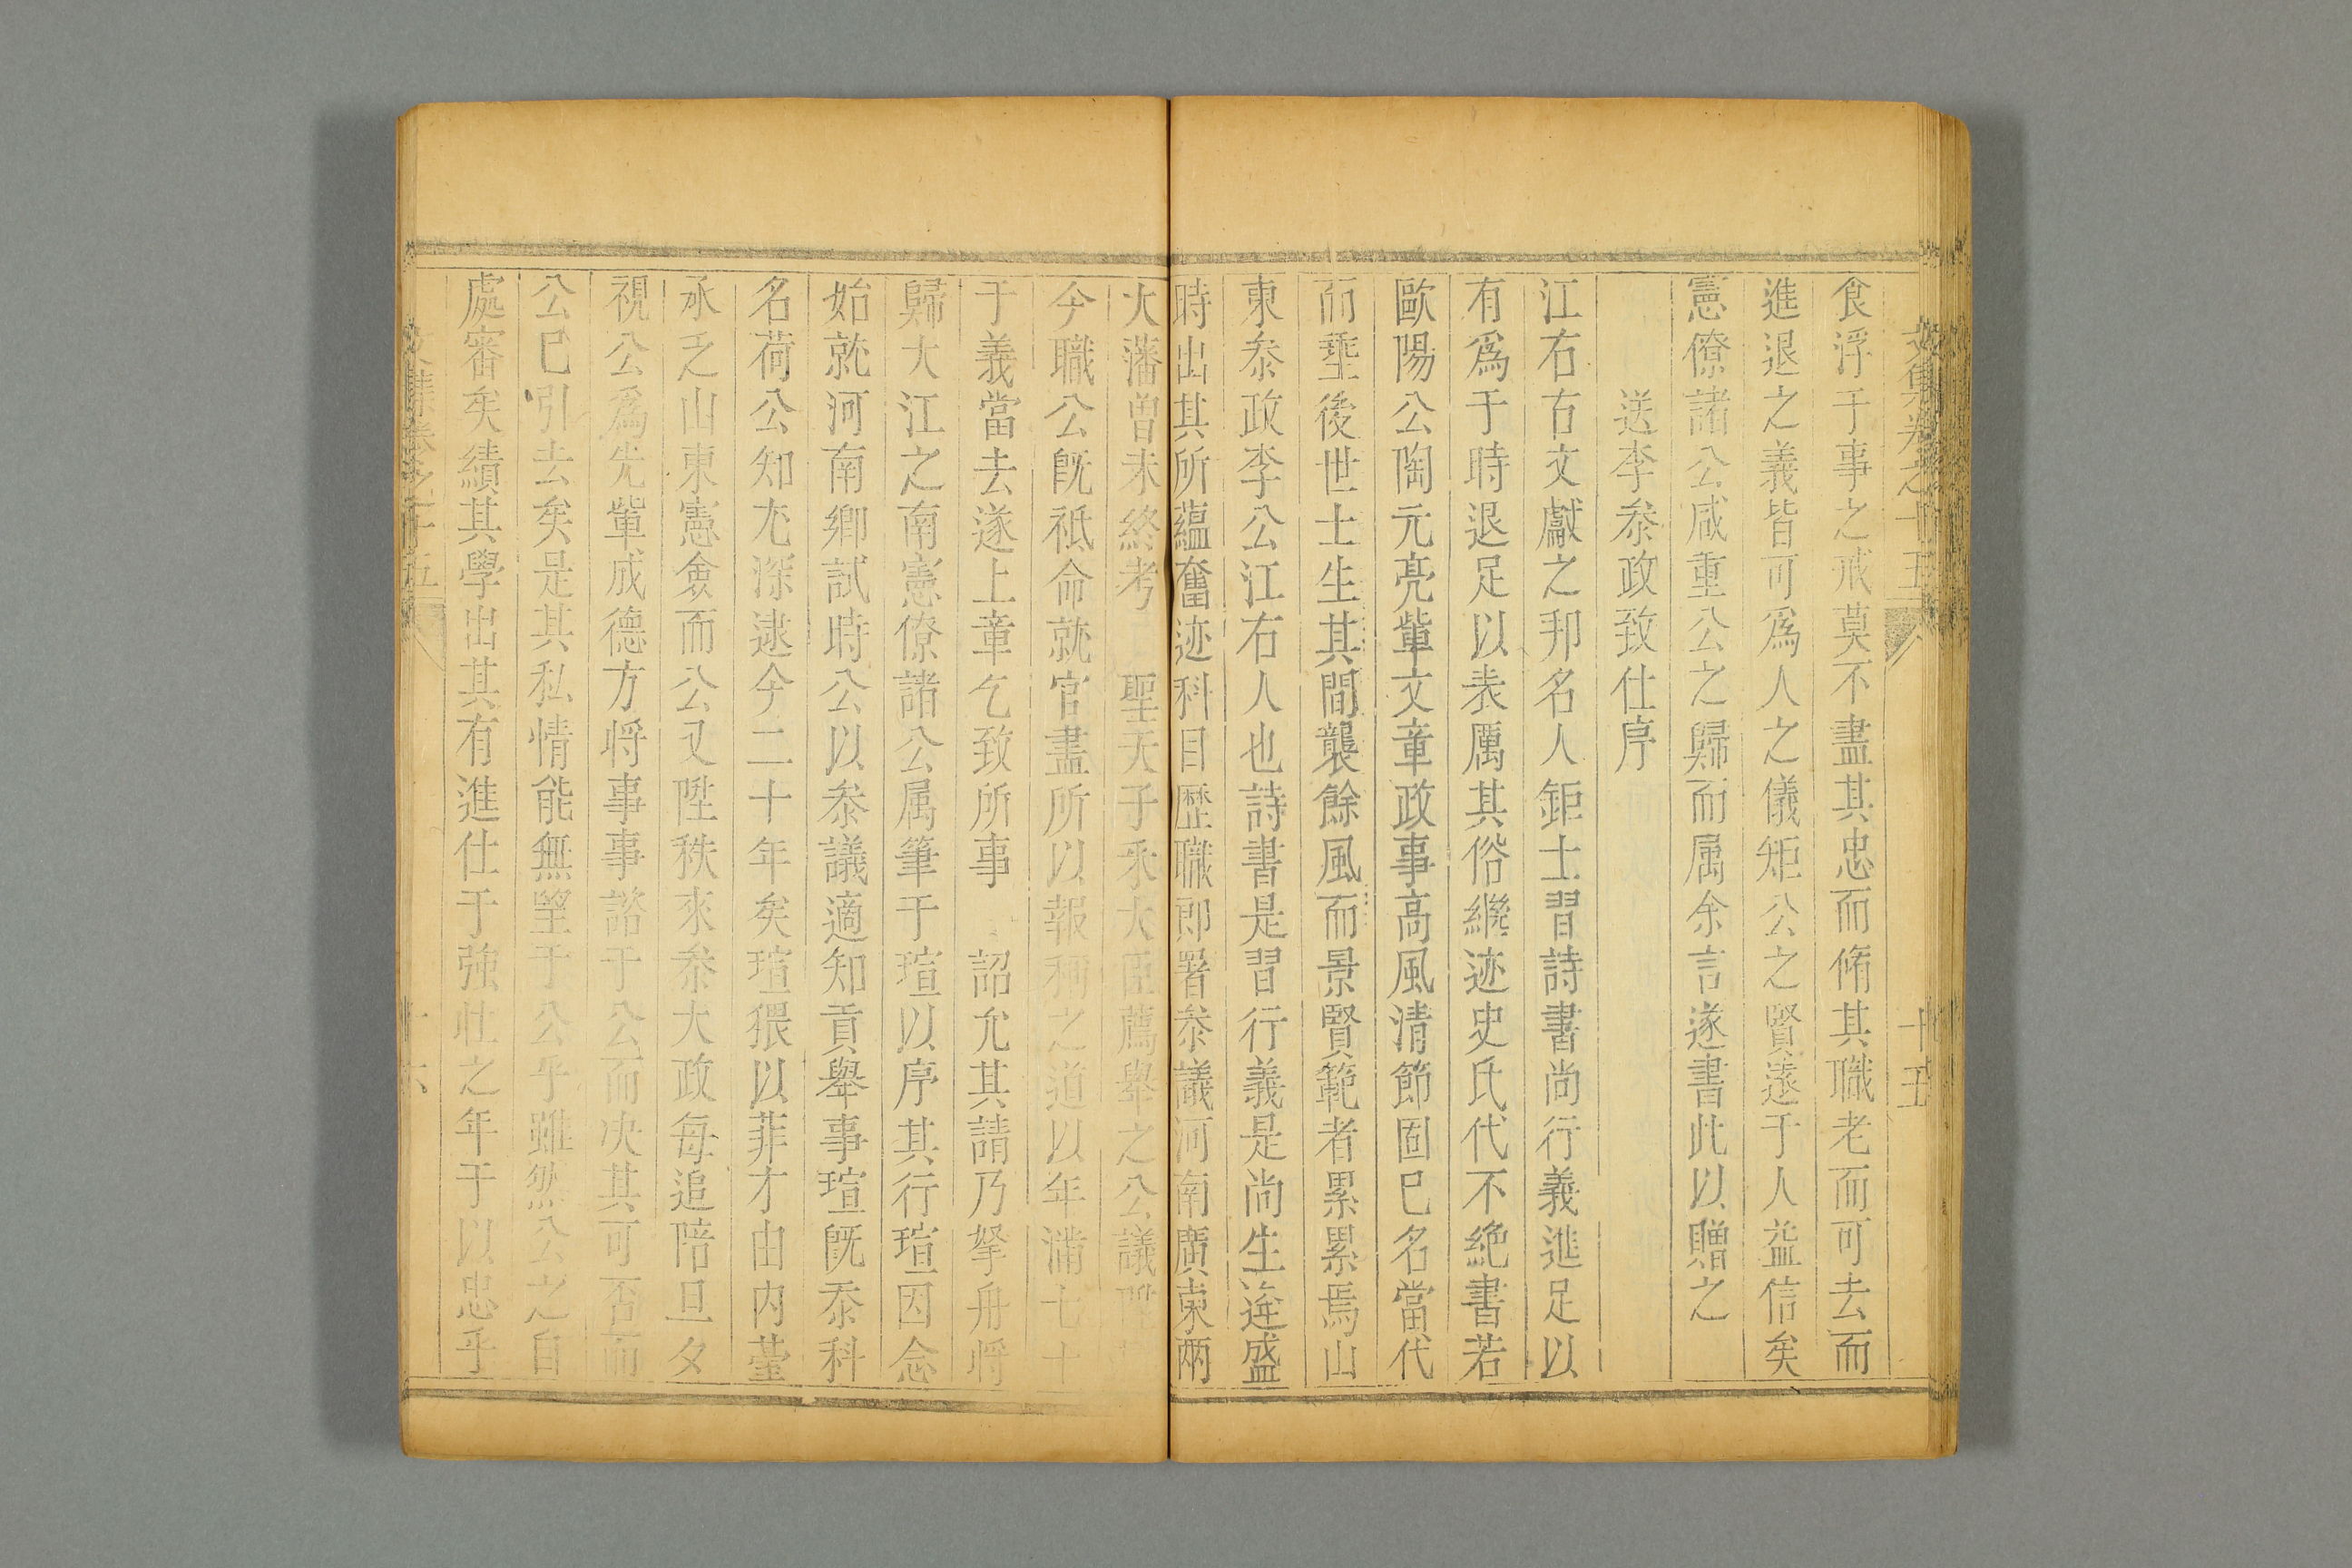 文集卷之十五
十五
食浮于事之戒莫不盡其忠而脩其職老而可去而
進退之義皆可爲人之儀矩公之賢遠于人益信矣
憲僚諸公咸重公之歸而属余言遂書此以贈之
送李叅政致仕序
江右右文獻之邦名人鉅士習詩書尚行義進足以
有爲于時退足以表厲其俗繼迹史氏代不絶書若
歐陽公陶元亮軰文章政事高風清節固已名當代
而埀後世士生其間襲餘風而景賢範者累累焉山
東叅政李公江右人也詩書是習行義是尚生逢盛
時出其所蘊奮迹科目歴職郎署叅議河南廣東兩
大藩曽未終考 聖天子采大臣薦舉之公議陞
今職公既祗命就官盡所以報稱之道以年滿七十
于義當去遂上章乞致所事 詔允其請乃拏舟將
歸大江之南憲僚諸公属筆于瑄以序其行瑄因念
始就河南鄉試時公以叅議適知貢舉事瑄既忝科
名荷公知尤深逮今二十年矣瑄猥以菲才由内臺
承乏山東憲僉而公又陞秩來叅大政每追陪旦夕
視公爲先軰成德方将事事諮于公而决其可否而
公已引去矣是其私情能無望于公乎雖然公之自
處審矣績其學出其有進仕于強壮之年于以忠乎
文集卷之十五
十六